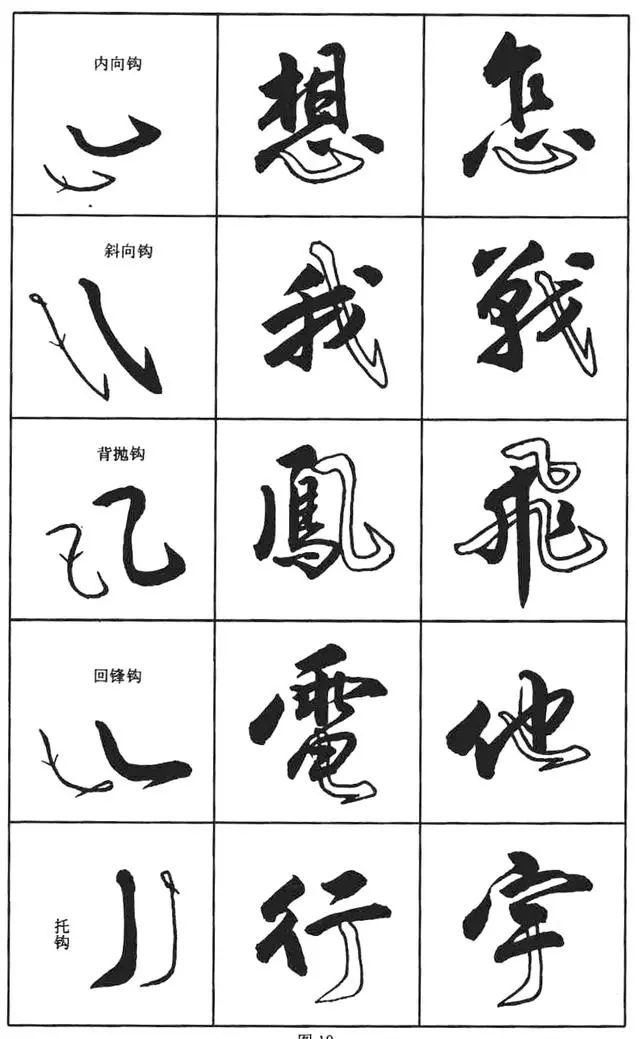 内向钩
想
怎
斜向钩
我
戦
背抛钩
鳳
飛
回锋钩
電
他
托钩
行
宇